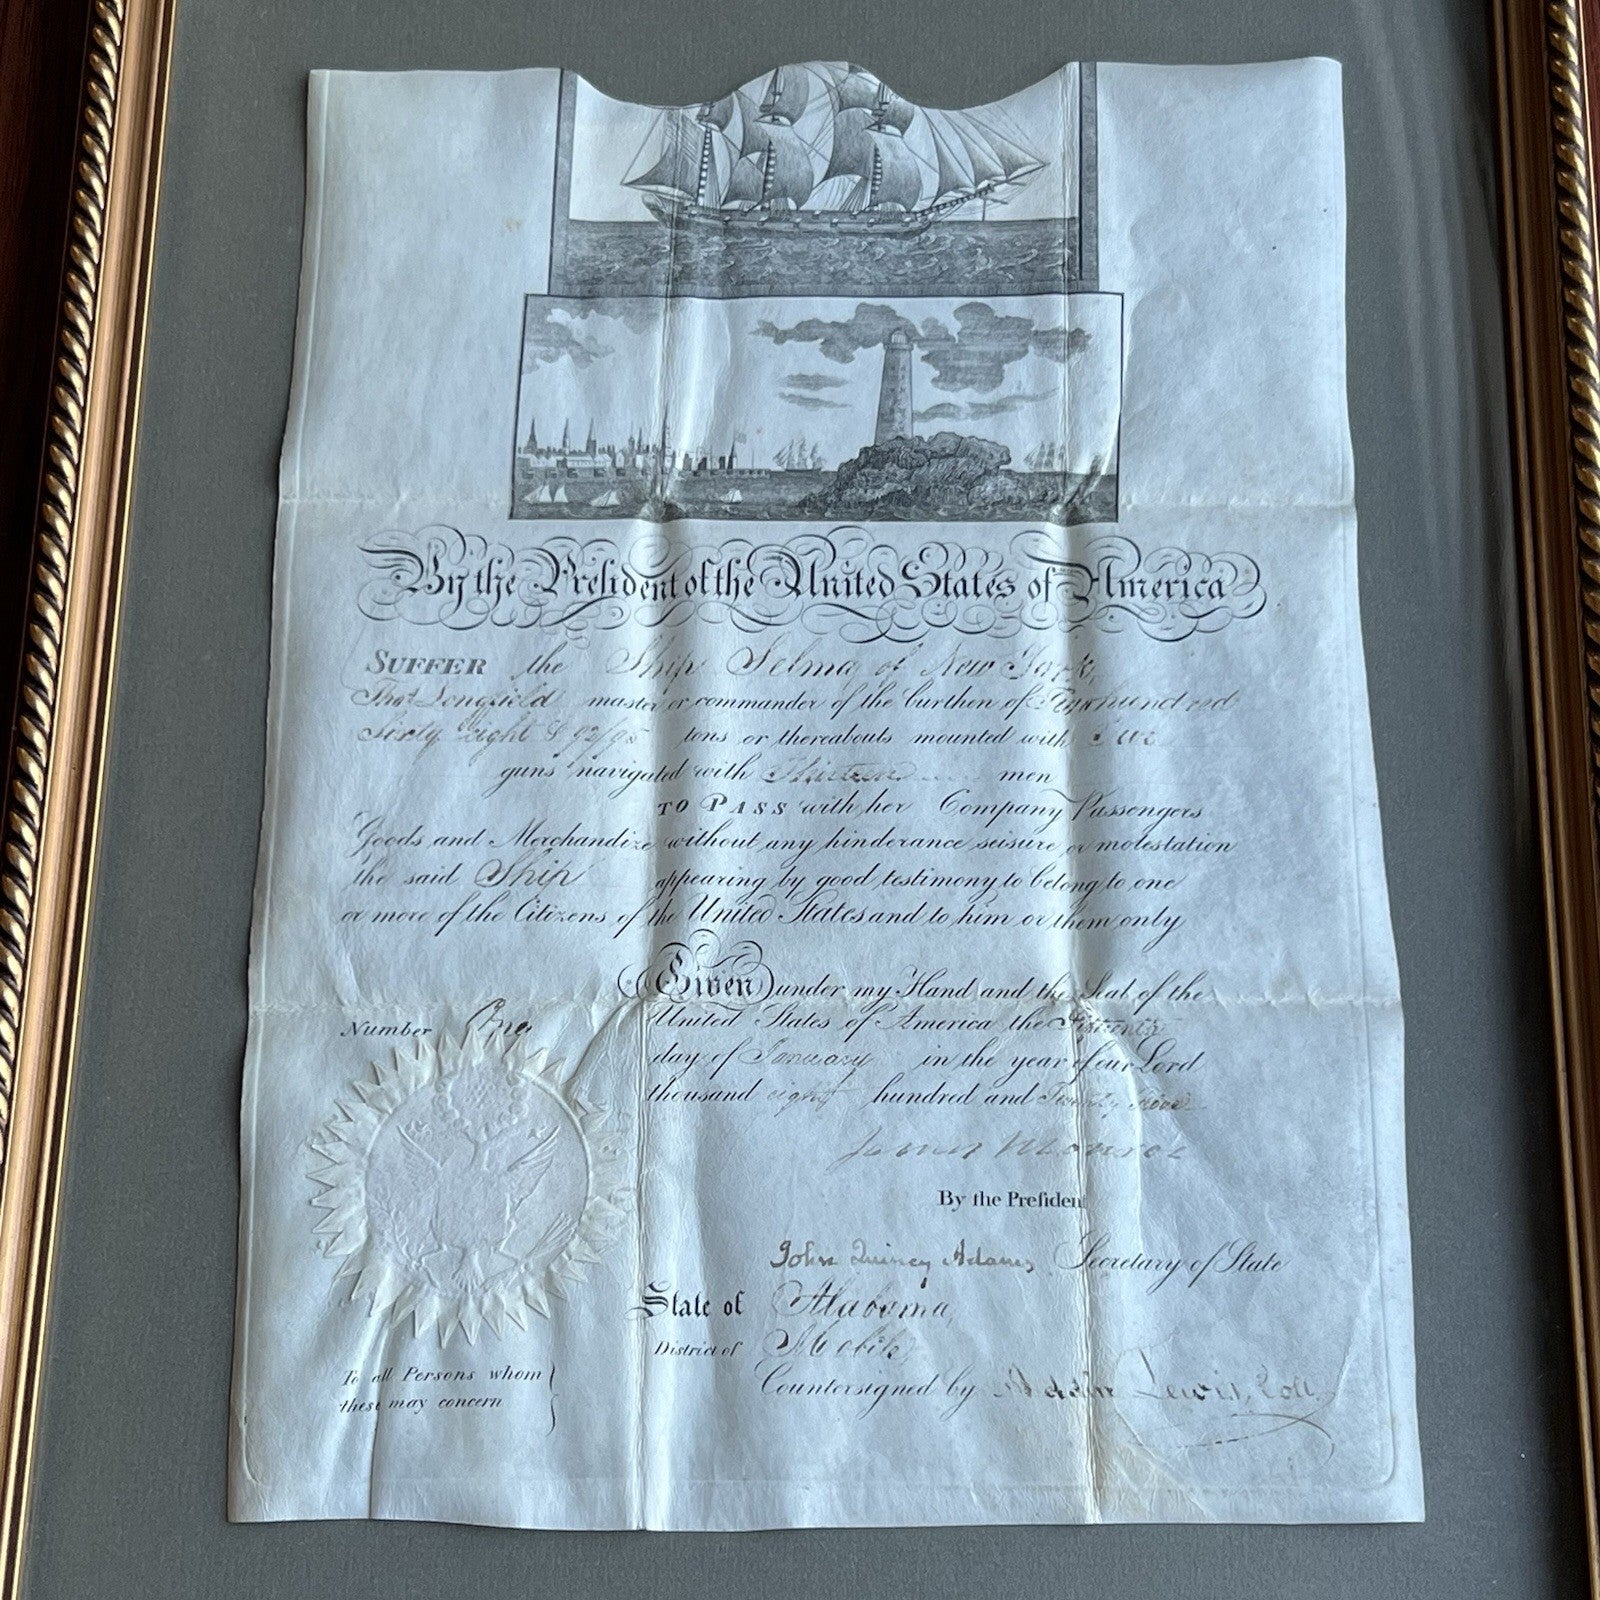 By the President of the United States of America
SUFFER the Ship Selma of New York,
Thos Longfield master or commander of the burthen of hundred
Sixty Eight & 92/95 tons or thereabouts mounted with
guns navigated with Thirteen men
TO PASS with her Company Passengers
Goods and Merchandize without any hinderance seisure or molestation
the said Ship appearing by good testimony to belong to one
or more of the Citizens of the United States and to him or them only
Given under my Hand and the Seal of the
Number One
United States of America the
day of January in the year of our Lord
thousand eight hundred and Twenty
James Monroe
By the Preſident
John Quincy Adams Secretary of State
State of Alabama,
District of Mobile,
To all Persons whom
these may concern
Countersigned by Addin Lewis, Coll.